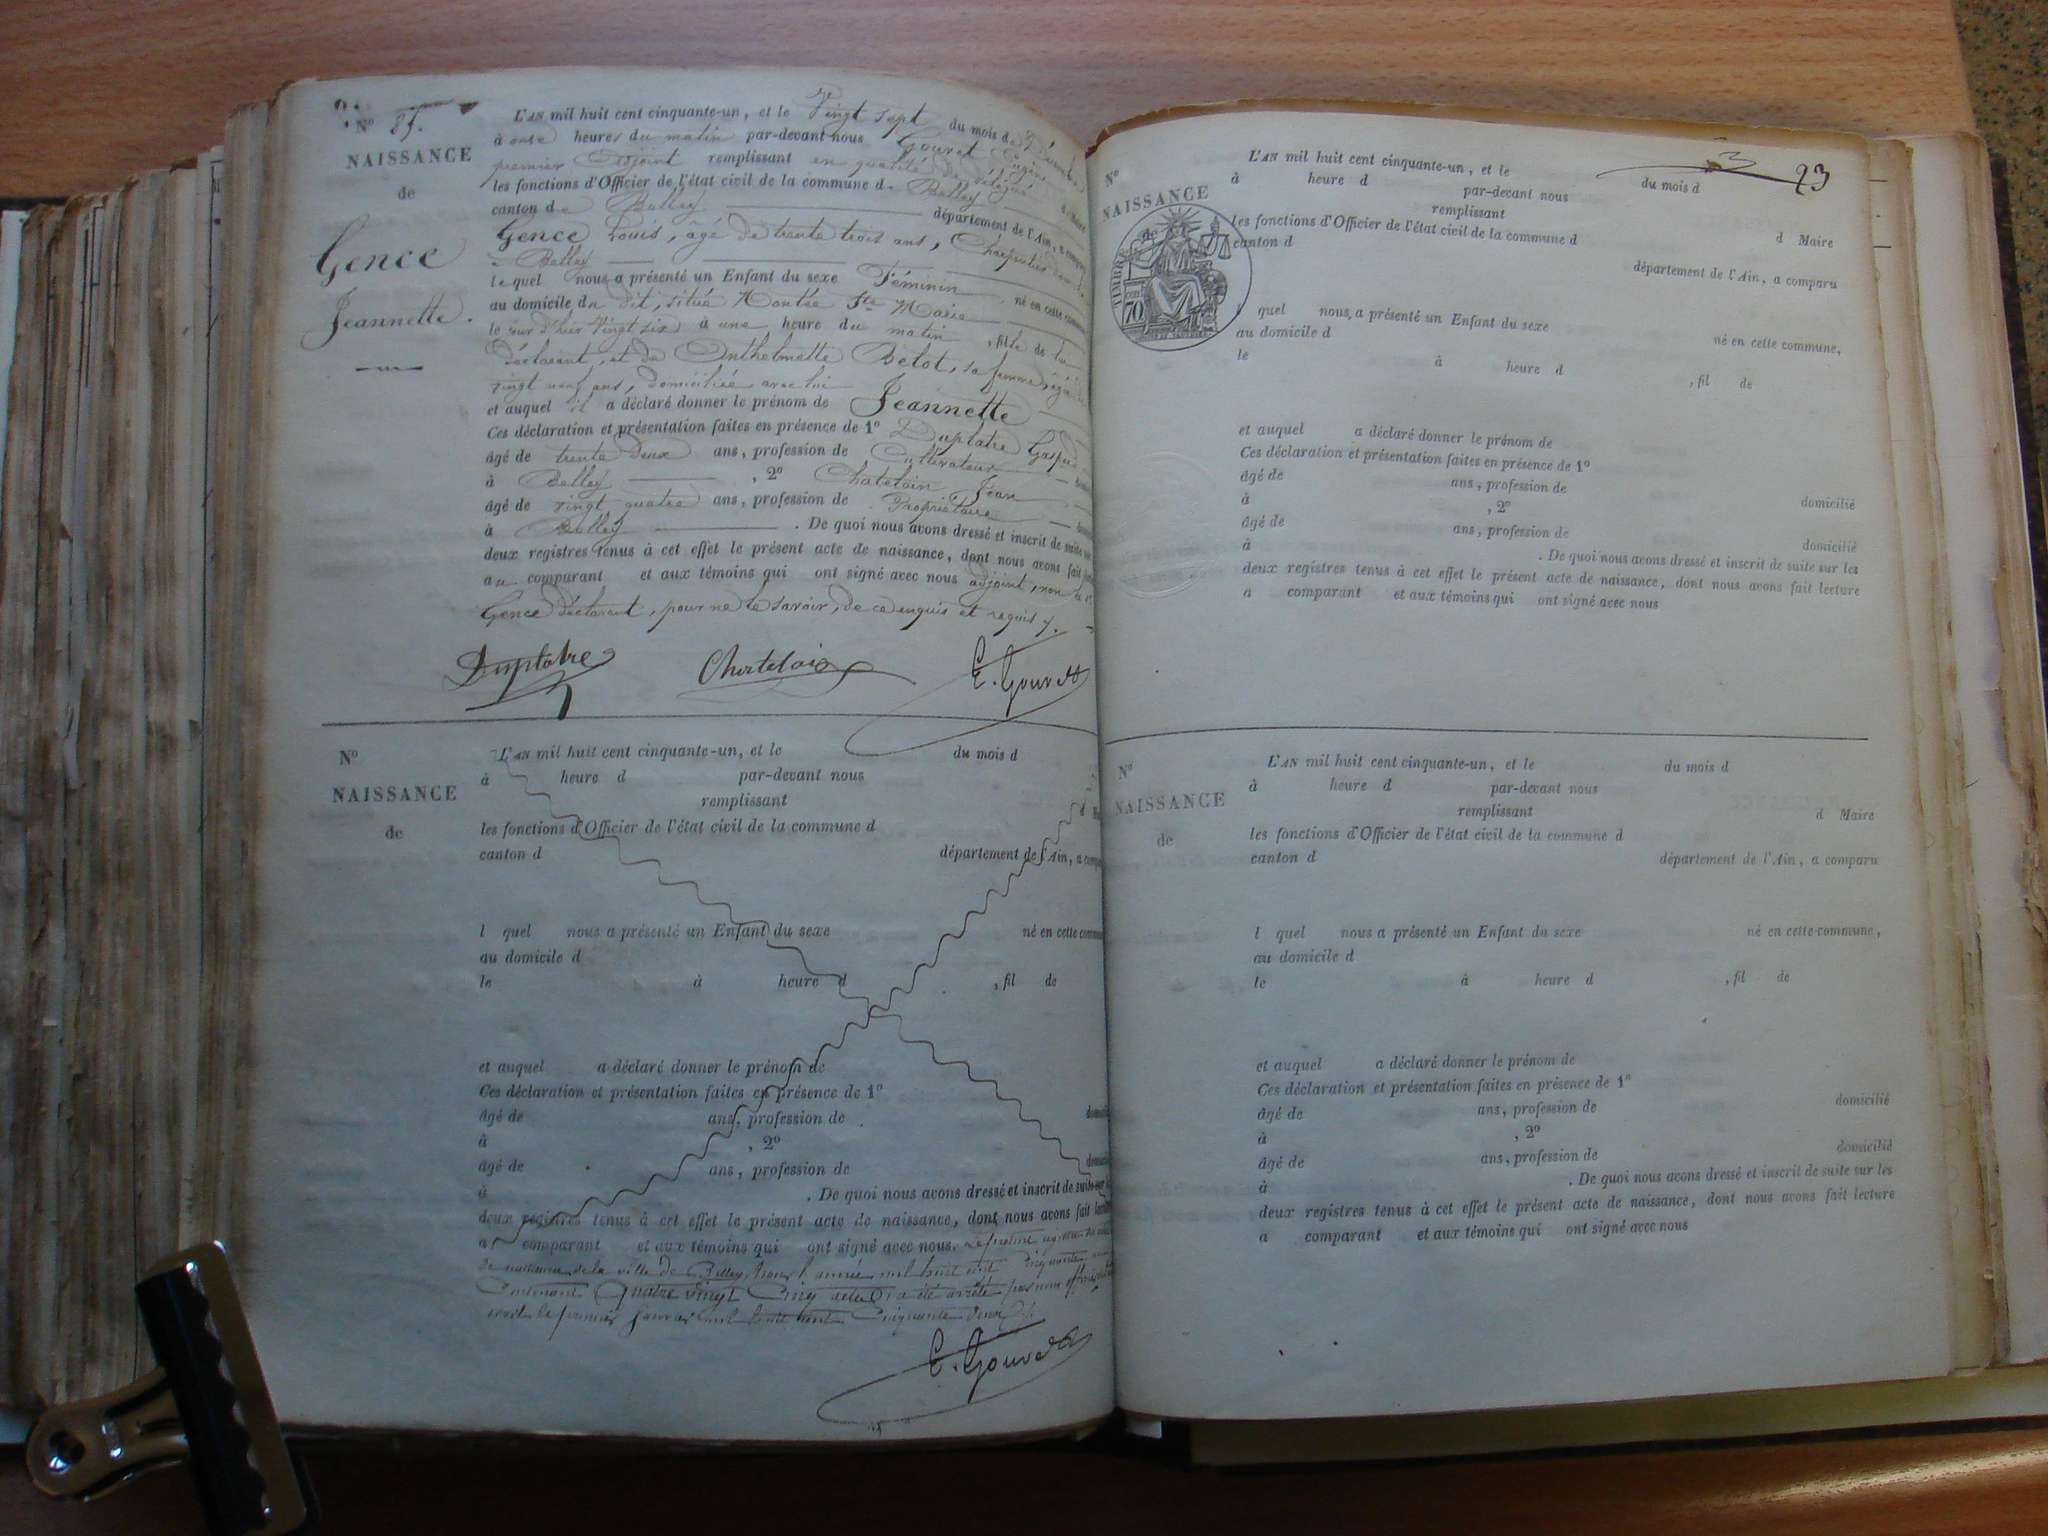 N° 85.
NAISSANCE
de
Gence
Jeannette.
L'AN mil huit cent cinquante-un, et le Vingt sept du mois de Décembre
à onze heures du matin par-devant nous Gouvet Eugène
premier Adjoint remplissant en qualité de délégué d Maire
les fonctions d'Officier de l'état civil de la commune de Belley
canton de Belley département de l'Ain, a comparu
Gence Louis, âgé de trente trois ans, Charpentier
à Belley
lequel nous a présenté un Enfant du sexe Féminin né en cette commune
au domicile du dit, située Montée Ste Marie
le jour d'hier Vingt six à une heure du matin, fille de lui
déclarant, et de Anthelmette Betot, sa femme, âgée de
vingt neuf ans, domiciliée avec lui
et auquel il a déclaré donner le prénom de Jeannette
Ces déclaration et présentation faites en présence de 1° Duplatre Gaspard
âgé de trente deux ans, profession de Cultivateur
à Belley, 2° Chatelain Jean
âgé de vingt quatre ans, profession de Propriétaire
à Belley. De quoi nous avons dressé et inscrit de suite sur
deux registres tenus à cet effet le présent acte de naissance, dont nous avons fait
au comparant et aux témoins qui ont signé avec nous adjoint, non le
Gence déclarant, pour ne le savoir, de ce enquis et requis
Duplatre Chatelain E. Gouvet
N°
NAISSANCE
de
L'AN mil huit cent cinquante-un, et le du mois d
à heure d par-devant nous
remplissant d
les fonctions d'Officier de l'état civil de la commune d
canton d département de l'Ain, a comparu
l quel nous a présenté un Enfant du sexe né en cette commune
au domicile d
le à heure d , fil de
et auquel a déclaré donner le prénom de
Ces déclaration et présentation faites en présence de 1°
âgé de ans, profession de
à , 2°
âgé de ans, profession de
à . De quoi nous avons dressé et inscrit de suite sur
deux registres tenus à cet effet le présent acte de naissance, dont nous avons fait lecture
a comparant et aux témoins qui ont signé avec nous. Le présent registre
de naissance de la ville de Belley pour l'année mil huit cent cinquante un
Contenant Quatre vingt Cinq actes a été arrêté par nous
le premier Janvier mil huit cent Cinquante deux
E. Gouvet
3
23
N°
NAISSANCE
de
TIMBRE
70
L'AN mil huit cent cinquante-un, et le du mois d
à heure d par-devant nous
remplissant d Maire
les fonctions d'Officier de l'état civil de la commune d
canton d département de l'Ain, a comparu
l quel nous a présenté un Enfant du sexe né en cette commune,
au domicile d
le à heure d , fil de
et auquel a déclaré donner le prénom de
Ces déclaration et présentation faites en présence de 1°
âgé de ans, profession de domicilié
à , 2°
âgé de ans, profession de domicilié
à . De quoi nous avons dressé et inscrit de suite sur les
deux registres tenus à cet effet le présent acte de naissance, dont nous avons fait lecture
a comparant et aux témoins qui ont signé avec nous
N°
NAISSANCE
de
L'AN mil huit cent cinquante-un, et le du mois d
à heure d par-devant nous
remplissant d Maire
les fonctions d'Officier de l'état civil de la commune d
canton d département de l'Ain, a comparu
l quel nous a présenté un Enfant du sexe né en cette commune,
au domicile d
le à heure d , fil de
et auquel a déclaré donner le prénom de
Ces déclaration et présentation faites en présence de 1°
âgé de ans, profession de domicilié
à , 2°
âgé de ans, profession de domicilié
à . De quoi nous avons dressé et inscrit de suite sur les
deux registres tenus à cet effet le présent acte de naissance, dont nous avons fait lecture
a comparant et aux témoins qui ont signé avec nous